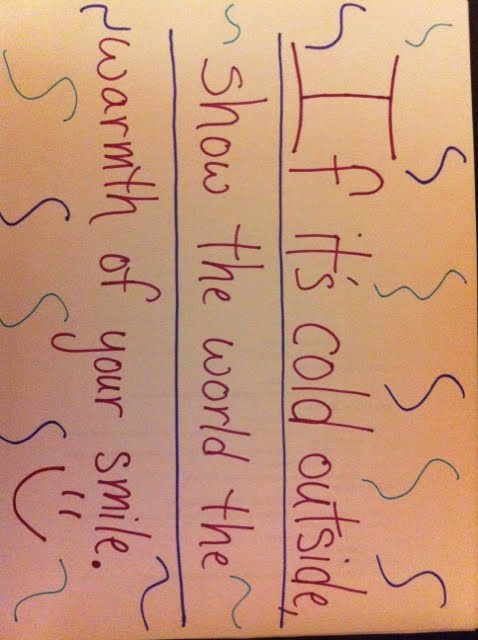 If it's cold outside,
show the world the
warmth of your smile.